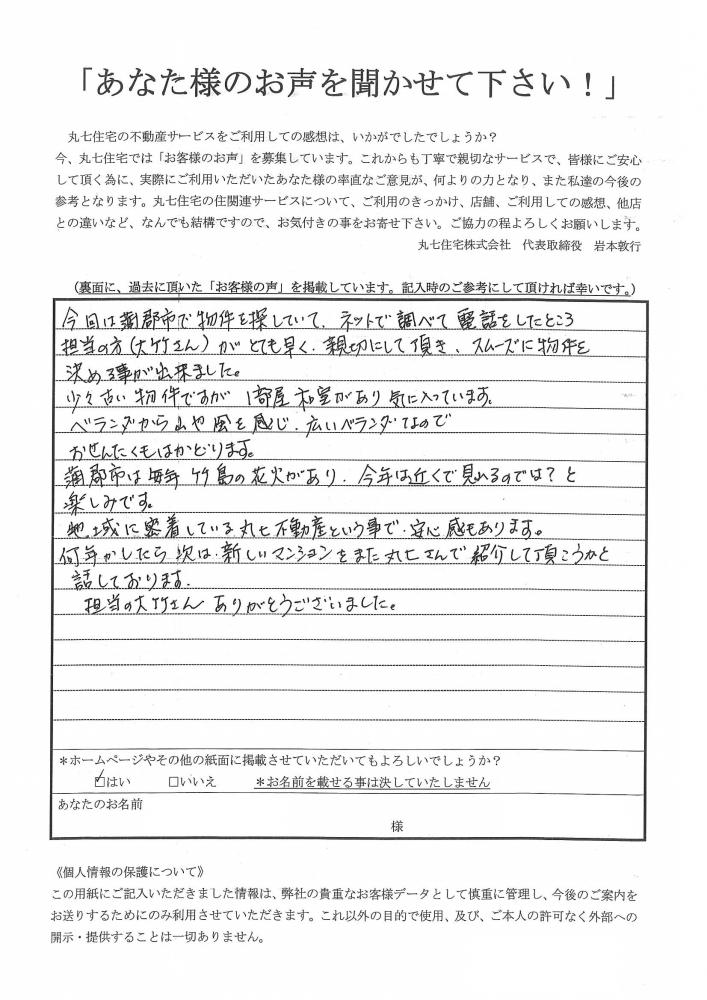 「あなた様のお声を聞かせて下さい！」
丸七住宅の不動産サービスをご利用しての感想は、いかがでしたでしょうか？
今、丸七住宅では「お客様のお声」を募集しています。これからも丁寧で親切なサービスで、皆様にご安心
して頂く為に、実際にご利用いただいたあなた様の率直なご意見が、何よりの力となり、また私達の今後の
参考となります。丸七住宅の住関連サービスについて、ご利用のきっかけ、店舗、ご利用しての感想、他店
との違いなど、なんでも結構ですので、お気付きの事をお寄せ下さい。ご協力の程よろしくお願いします。
丸七住宅株式会社　代表取締役　岩本敦行
（裏面に、過去に頂いた「お客様の声」を掲載しています。記入時のご参考にして頂ければ幸いです。）
今回は蒲郡市で物件を探していて、ネットで調べて電話をしたところ
担当の方(大竹さん)がとても早く、親切にして頂き、スムーズに物件を
決める事が出来ました。
少々古い物件ですが 1部屋和室があり気に入っています。
ベランダから山や風を感じ、広いベランダなので
おせんたくもはかどります。
蒲郡市は毎年竹島の花火があり、今年は近くで見れるのでは？と
楽しみです。
地域に密着している丸七不動産という事で、安心感もあります。
何年かしたら次は、新しいマンションをまた丸七さんで紹介して頂こうかと
話しております。
担当の大竹さん ありがとうございました。
＊ホームページやその他の紙面に掲載させていただいてもよろしいでしょうか？
☑はい　□いいえ　＊お名前を載せる事は決していたしません
あなたのお名前
様
《個人情報の保護について》
この用紙にご記入いただきました情報は、弊社の貴重なお客様データとして慎重に管理し、今後のご案内を
お送りするためにのみ利用させていただきます。これ以外の目的で使用、及び、ご本人の許可なく外部への
開示・提供することは一切ありません。